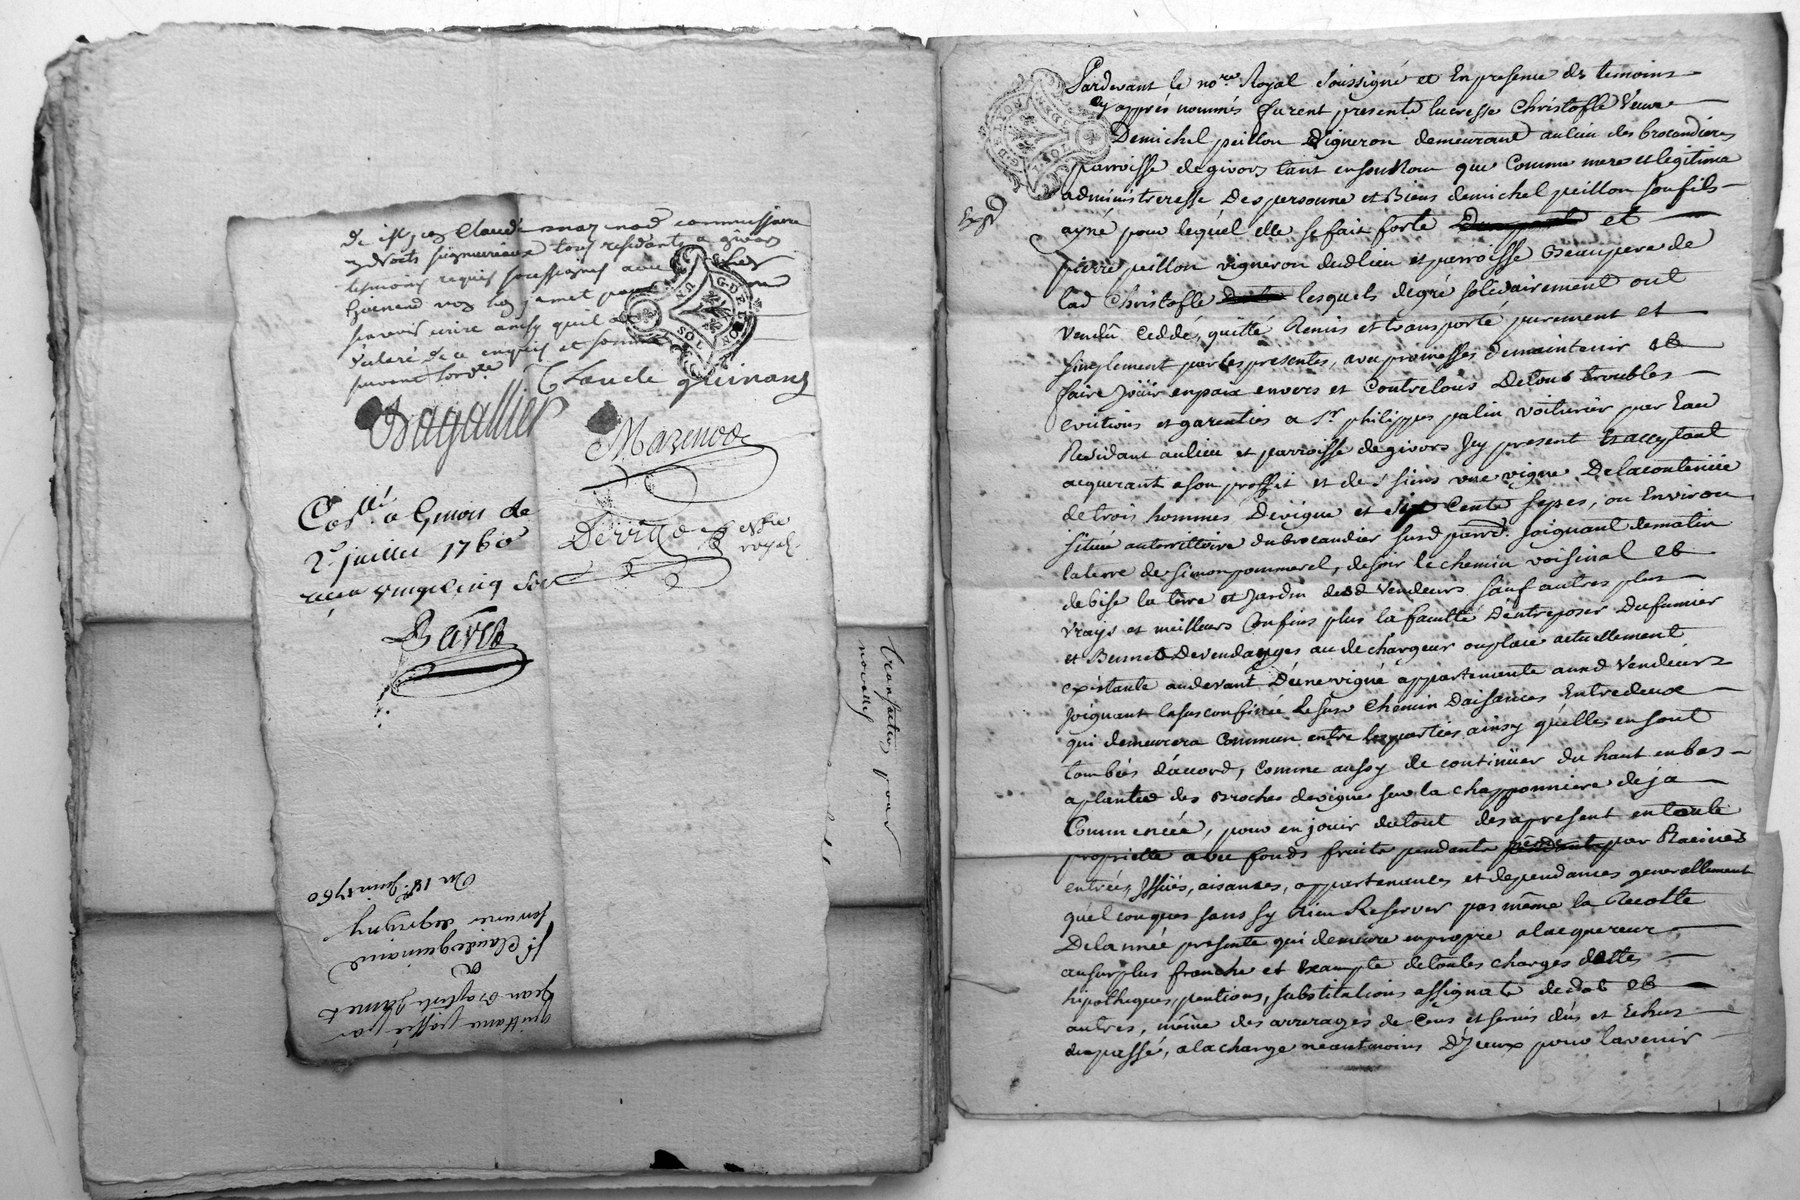 de
Claude mazenod commissaire
droits seigneuriaux tous residants a givors
tesmoins requis soussignés avec
non led jamet pour
scavoir ecrire ainsy quil a
declaré de ce enquis et sommé
suivant lord.ce
Claude guinand
Bagallier
Mazenod
Con.llé a Givors le
2.e juillet 1760
vingt cinq sols
no.re
royal
translation pour
novelles
quittance passée par
Jean Baptiste Jamet
a
S.r Claude guinand
Du 18.e Juin 1760
UN SOL
G DE LYON
Pardevant le no.re Royal soussigné et En presence des temoins
cy apprés nommés furent presents lucresse Christofle Veuve
Demichel peillon Vigneron demeurant au lieu des brocandieres
parroisse de givors tant en son Nom que Comme mere et legitime
administreresse Des personne et Biens demichel peillon son fils
ayné pour lequel elle se fait forte et
pierre peillon vigneron dud lieu et parroisse Beaupere de
lad Christofle lesquels degré solidairement ont
Vendû Ceddé, quitté, Remis et transporté purement et
simplement par les presentes, avec promesses de maintenir et
faire Jouir en paix envers et Contre tous De tous troubles
evictions et garenties a S.r philippes palin voiturier par Eau
Residant au lieu et parroisse de givors Icy present Et acceptant
acquerant a son proffit et des siens une vigne De la contenüe
de trois hommes De vigne et six Cents seps, ou Environ
située au territoire du brocandier susd parr.e Joignant de matin
la terre de Simon pommerel, de soir le chemin voisinal et
de bise la terre et Jardin desd Vendeurs sauf autres plus
Vrays et meilleurs Confins plus la faculté D'entreposer Du fumier
et Bennes De vendanges au dechargeur ou place actuellement
existante au devant D'une vigne appartenante auxd Vendeurs
Joignant la sus confinée le susd Chemin D'aisances Entredeux
qui demeurera Commun entre les parties ainsy qu'elles en sont
tombées d'accord, Comme aussy de continuer du haut en bas
a planter des Broches de vigne sur la chapponniere deja
Commencée, pour en jouir du tout des apresent en toute
proprietté avec fonds fruits pendants par Racines
entrées, Issües, aisances, appartenances et dependances generallement
quelconques sans sy Rien Reserver pas même la Recolte
De l'année presente qui demeure en propre a l'acquereur
au surplus franche et Exempte de toutes charges dettes
hipotheques, pentions, substitutions assignats de dot et
autres, même des arrerages de Cens et servis dûs et Echus
du passé, a la charge neantmoins D'Iceux pour lavenir